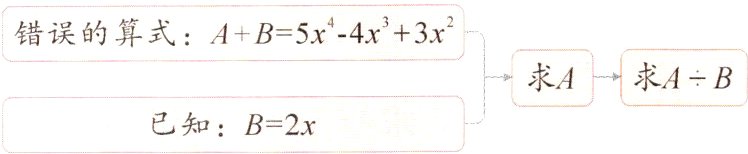 错误的算式：A+B=5x⁴-4x³+3x²
已知：B=2x
求A
求A÷B